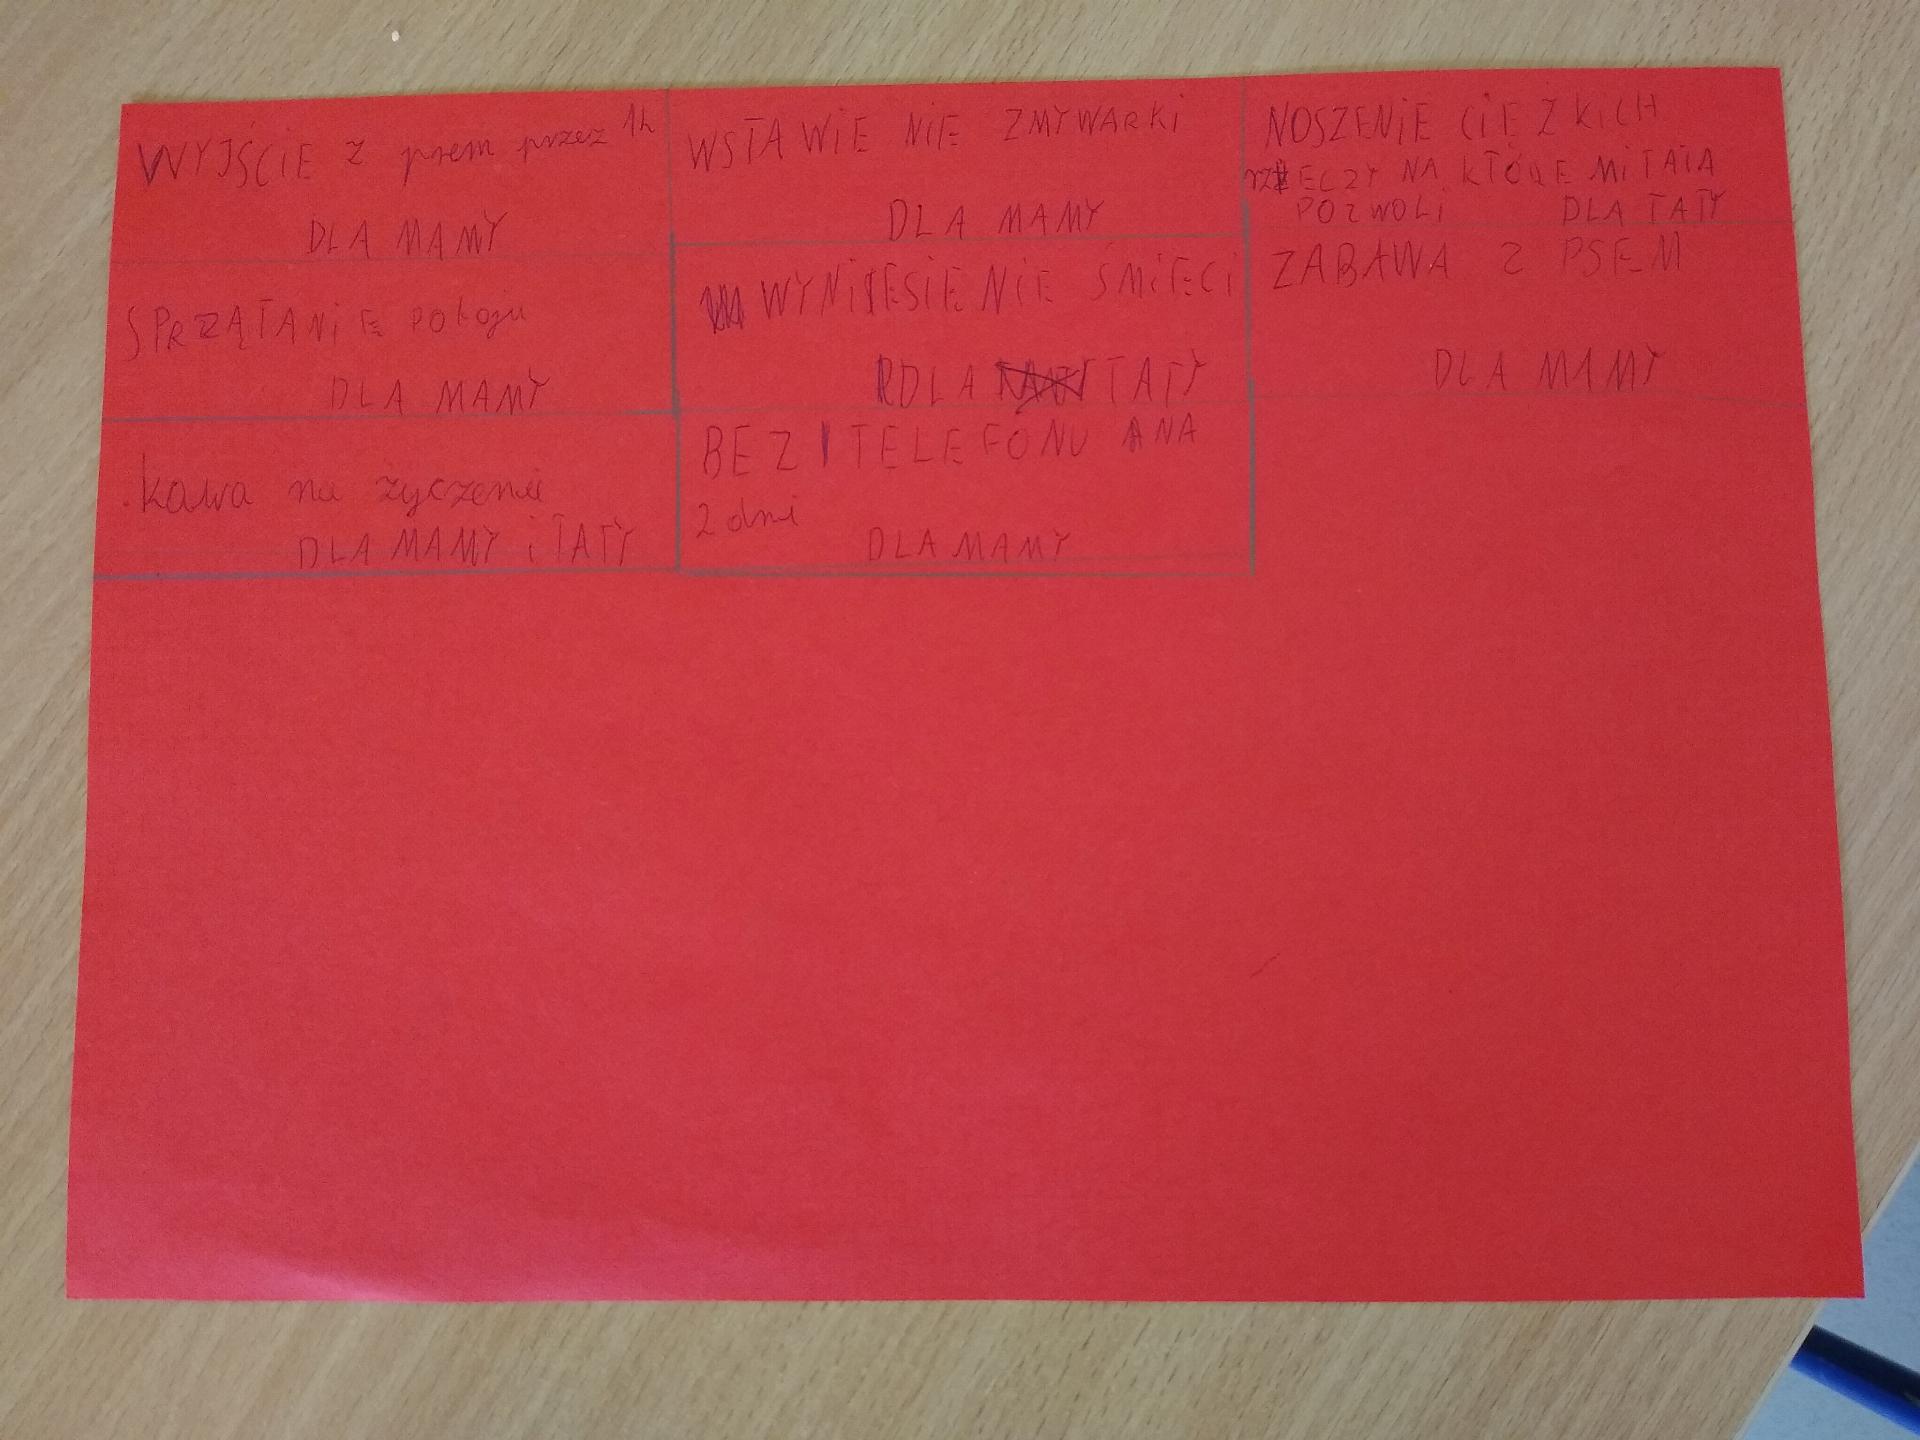 WYJŚCIE z psem przez 1h
DLA MAMY
WSTAWIENIE ZMYWARKI
DLA MAMY
NOSZENIE CIĘŻKICH
rzECZY NA KTÓRE Mi TATA
POZWOLi DLA TATY
SPRZĄTANiE pokoju
DLA MAMY
WYNiESIENIE ŚMiECi
DLA TATY
ZABAWA Z PSEM
DLA MAMY
kawa na życzenie
DLA MAMY i TATY
BEZ TELEFONU NA
2 dni
DLA MAMY